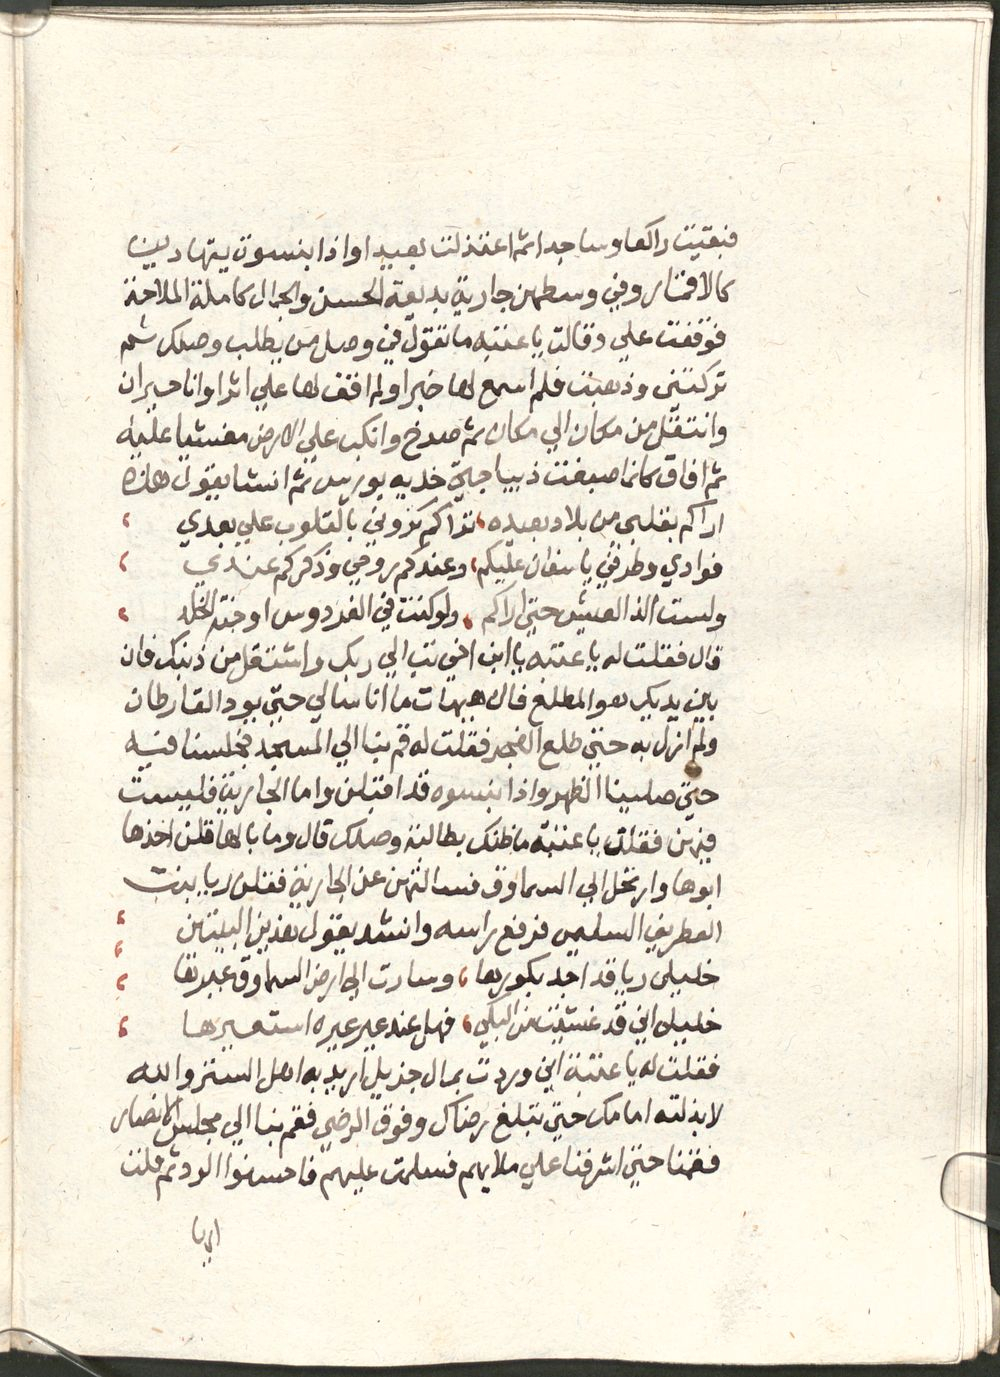 فبقيت راكعا وساجدا ثم اعتزلت بعيدا واذا بنسوت يتهادين
كالاقمار وفي وسطهن جارية بديعة الحسن والجمال كاملة الملاحة
فوقفت علي وقالت يا عتبه ما تقول في وصل من يطلب وصلك ثم
تركتني وذهبت فلم اسمع لها خبرا ولم اقف لها علي اثرا وانا حيران
وانتقل من مكان الي مكان ثم صرخ وانكب علي الارض مغشيا عليه
ثم افاق كانما صبغت ذيباجتي خديه بورس ثم انشا يقول هذه
اراكم بقلبي من بلاد بعيده ، تراكم تروني بالقلوب علي بعدي ،
فوادي وطرفي ياسفان عليكم ، وعندكم روحي وذكركم عندي ،
ولست الذ العيش حتي اراكم ، ولو كنت في الفردوس او جنة الخلد ،
قال فقلت له يا عتبه يا ابن اخي تب الي ربك واشتقل من ذنبك فان
بين يديك هو المطلع قال هيهات ما انا سالي حتي يود القارطان
ولم ازل به حتي طلع الفجر فقلت له قم بنا الي المسجد فجلسنا فيه
حتي صلينا الظهر واذا بنسوه قد اقبلن واما الجارية فليست
فيهن فقلن يا عتبة ما ظنك بطالبة وصلك قال وما بالها قلن اخذها
ابوها وارتحل الي السماوة فسالتهن عن الجارية فقلن ريا بنت
الغطريف السليمي فرفع راسه وانشد يقول هذين البيتين ،
خليلي ريا قد اجد بكورها ، وسارت الي ارض السماوة عيرها ،
خليلي اني قد غشيت من البكي ، فهل عند غيري عبره استعيرها ،
فقلت له يا عتبة اني وردت بمال جزيل اريد به اهل الستر والله
لابذلنه امامك حتي تبلغ رضاك وفوق الرضي فقم بنا الي مجلس الانصار
فقمنا حتي اشرفنا علي ملايهم فسلمت عليهم فاحسنوا الرد ثم قلت
ايها